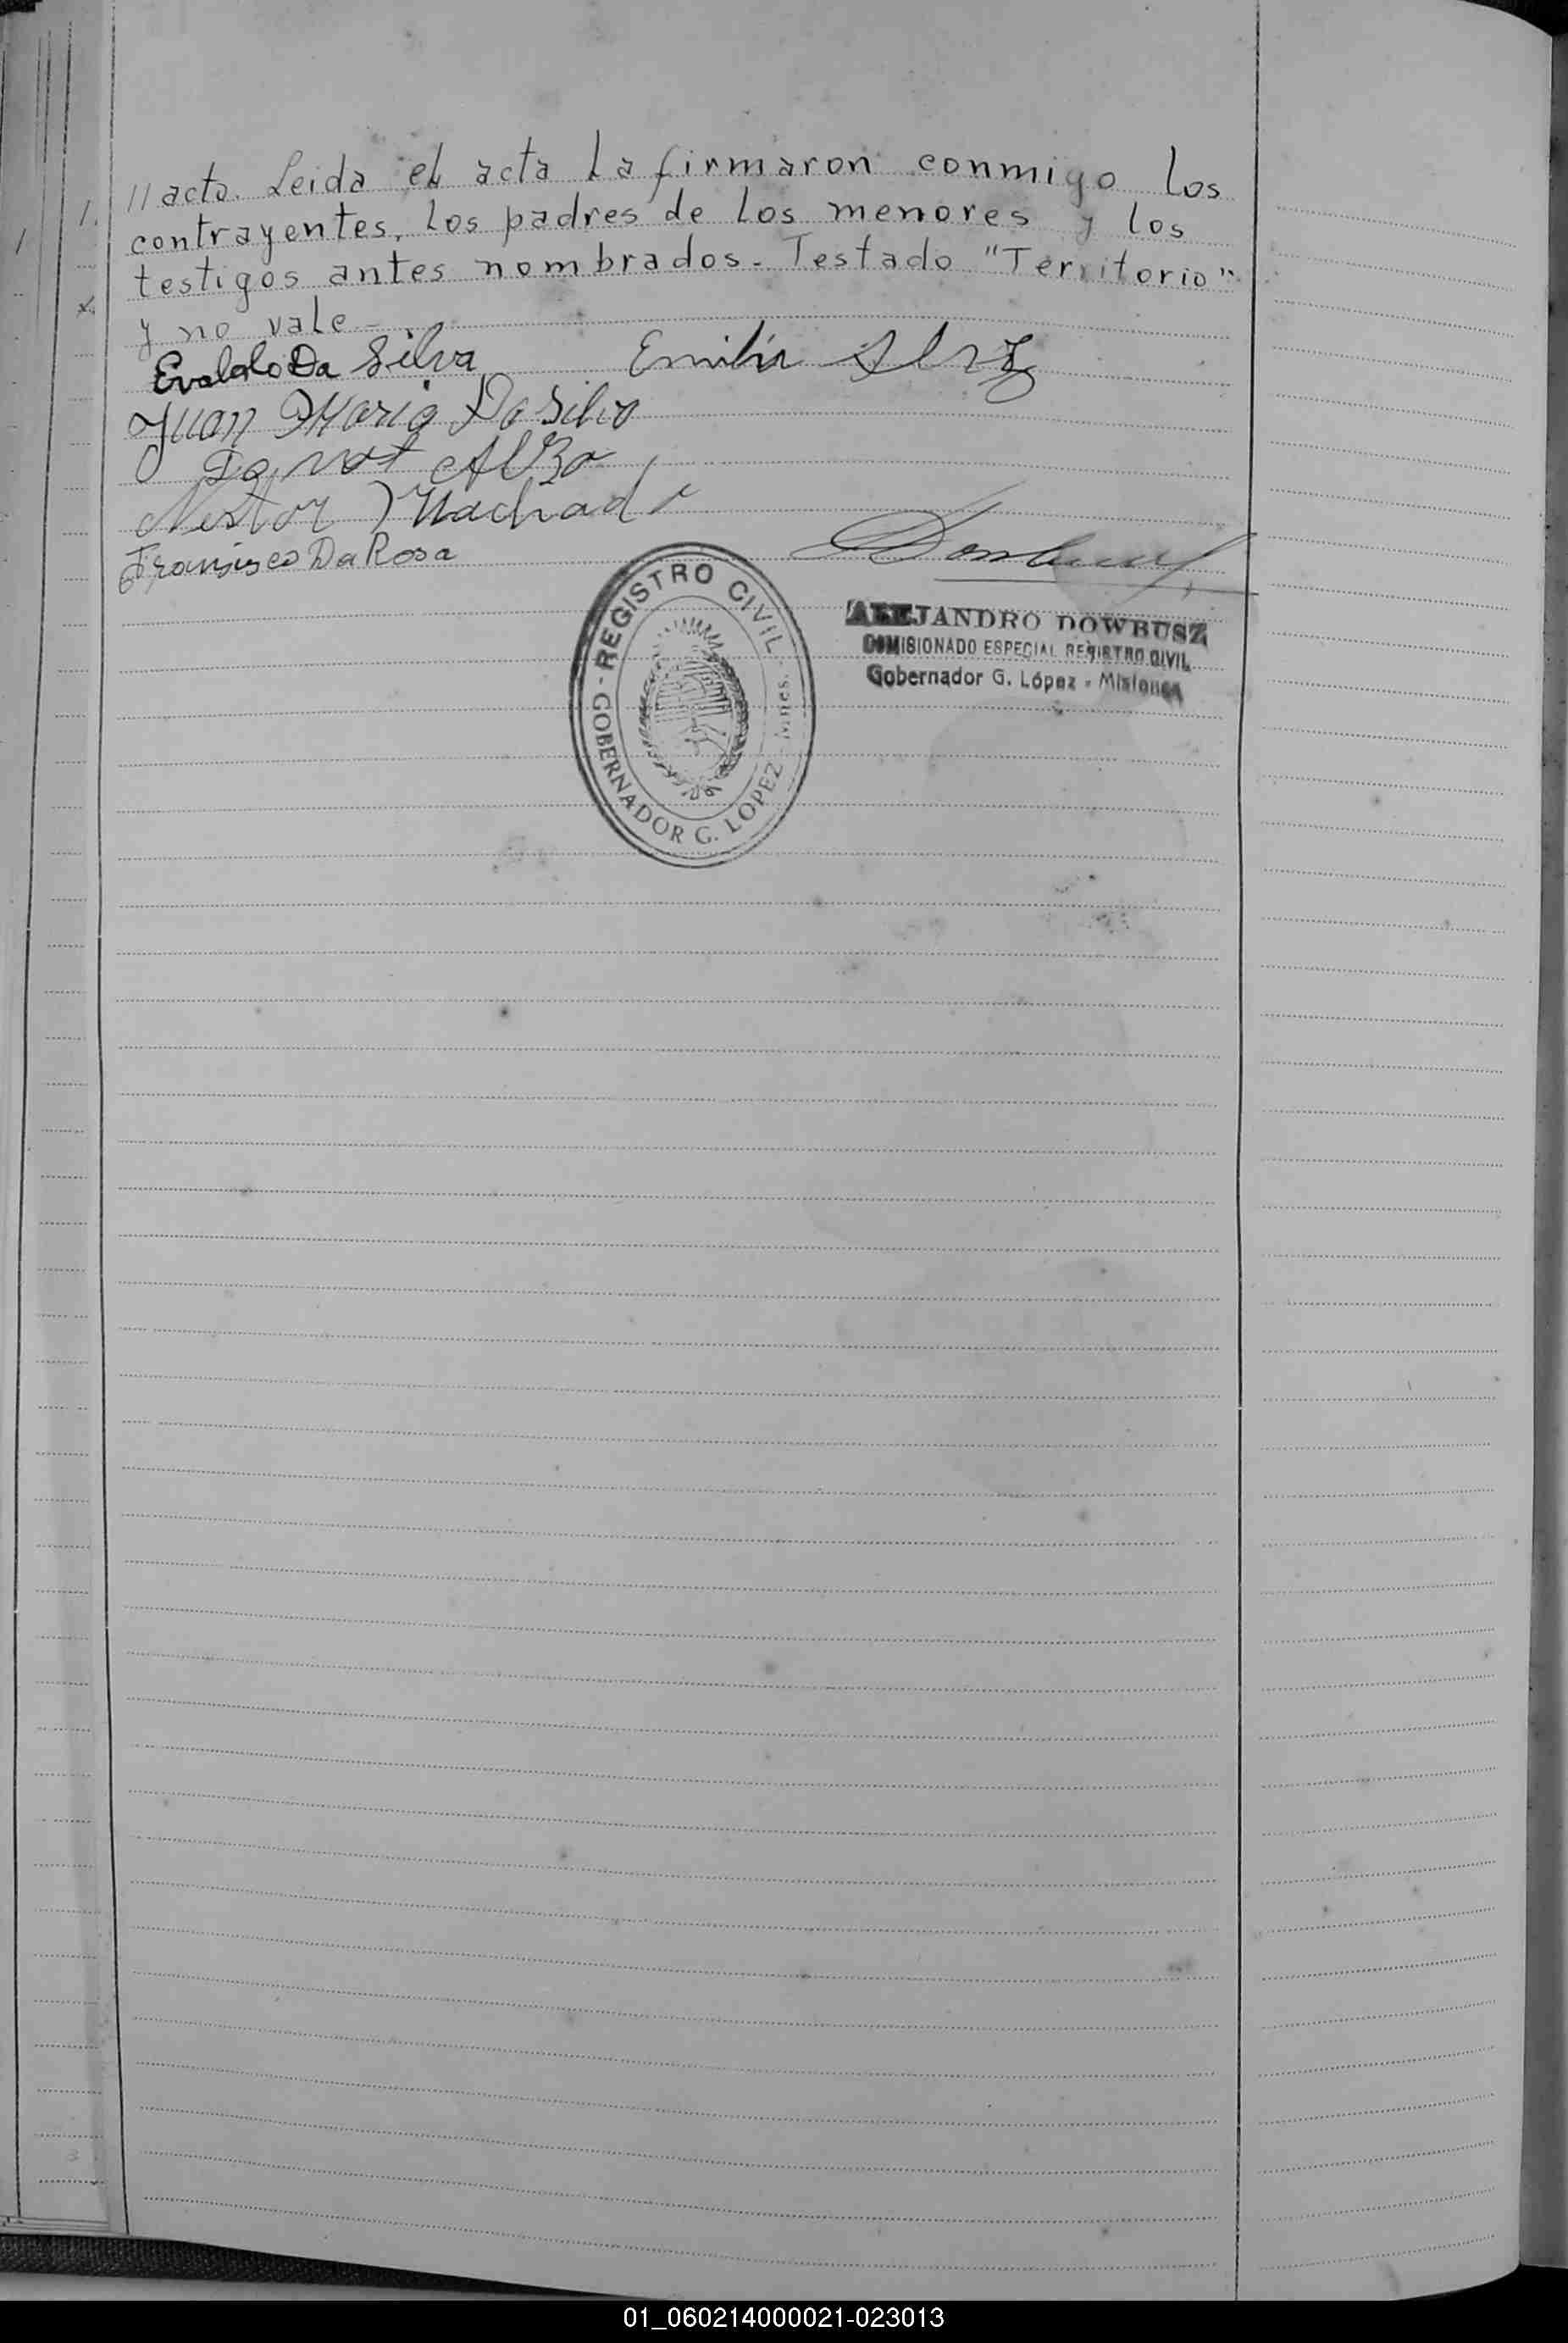 //acto. Leida el acta la firmaron conmigo los
contrayentes, los padres de los menores y los
testigos antes nombrados. Testado "Territorio"
y no vale.-
Evaldo Da Silva Emilia
Juan Maria Da Silva
Nestor Machado
Fransisco Da Rosa
- REGISTRO CIVIL -
GOBERNADOR G. LOPEZ - Mnes.
ALEJANDRO DOWBUSZ
COMISIONADO ESPECIAL REGISTRO CIVIL
Gobernador G. López - Misiones
01_060214000021-023013